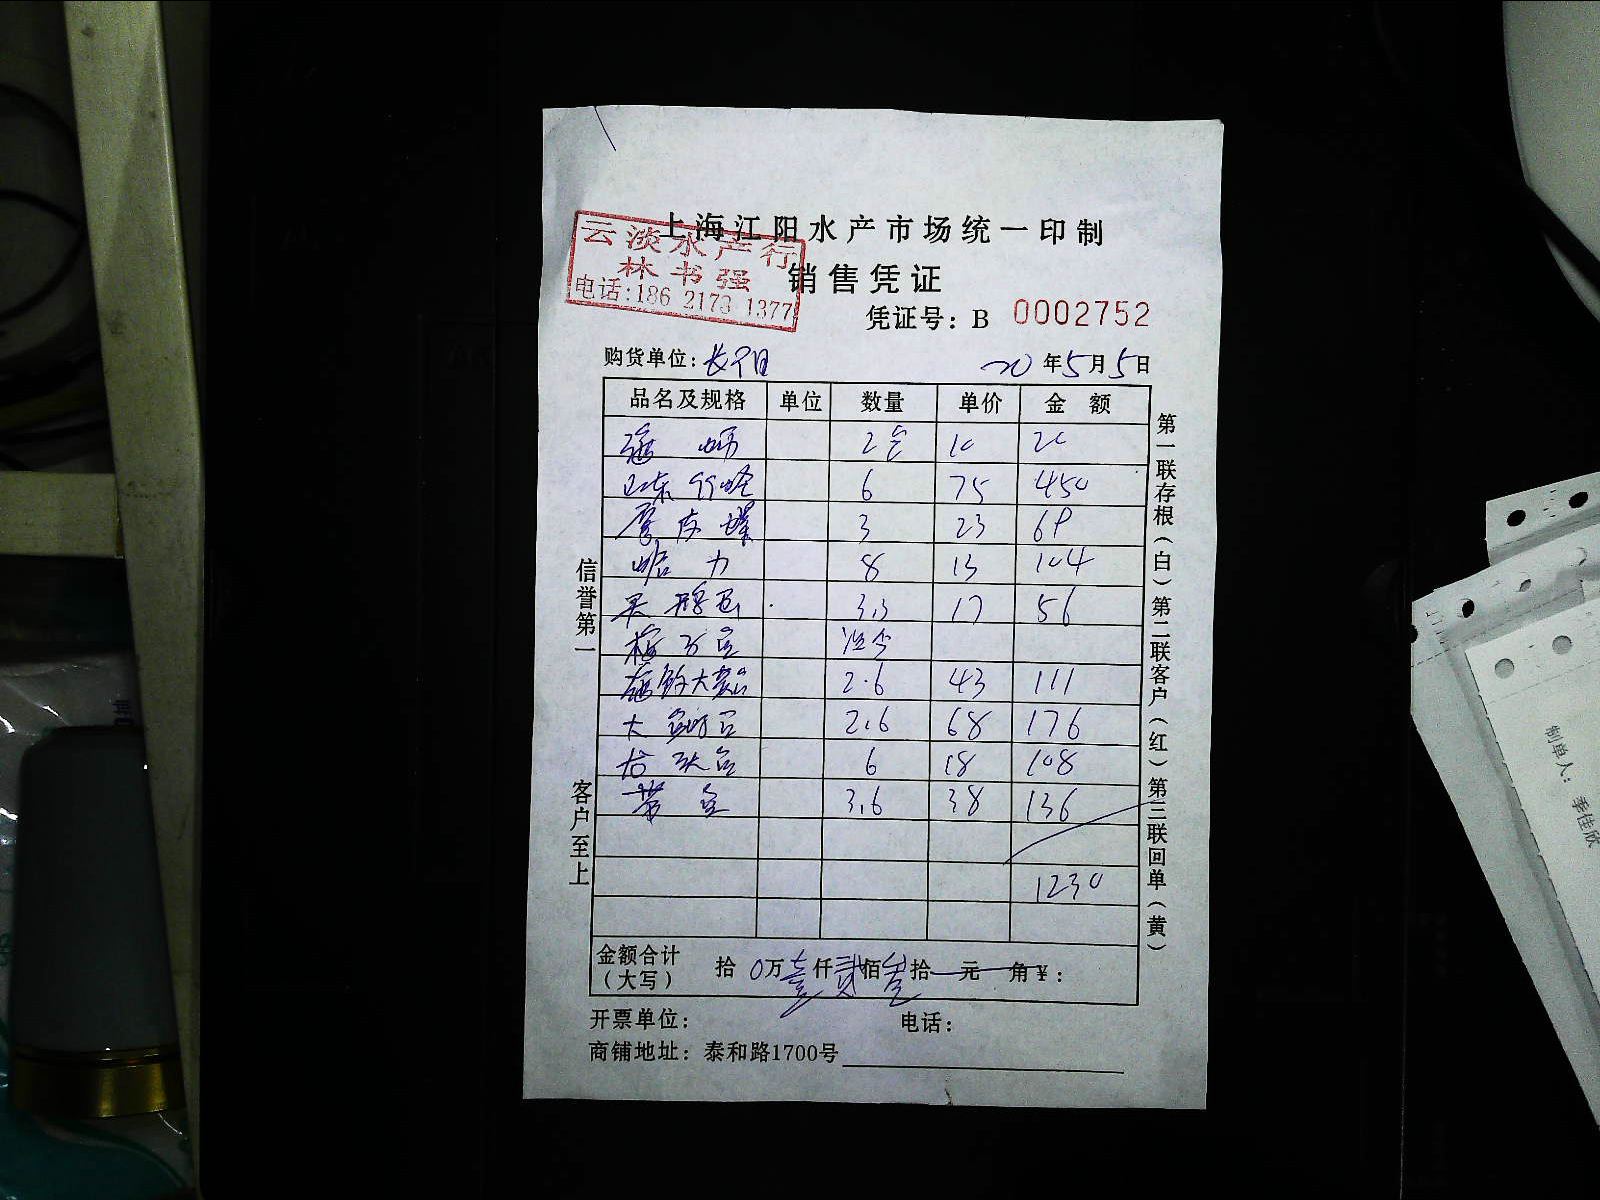 上海江阳水产市场统一印制
云淡水产行
林书强
电话:186 2173 1377
销售凭证
凭证号：B 0002752
购货单位：长阳
20年5月5日
品名及规格 单位 数量 单价 金额
海蛎 2 10 20
山东竹蛏 6 75 450
3 23 69
蛤力 8 13 104
3.3 17 56
梅子鱼 没令
2.6 43 111
大 2.6 68 176
6 18 108
带鱼 3.6 38 136
1230
金额合计（大写） 拾0万壹仟贰佰叁拾元角￥：
开票单位：
电话：
商铺地址：泰和路1700号
信誉第一
客户至上
第一联存根（白）第二联客户（红）第三联回单（黄）
制单人：季佳欣